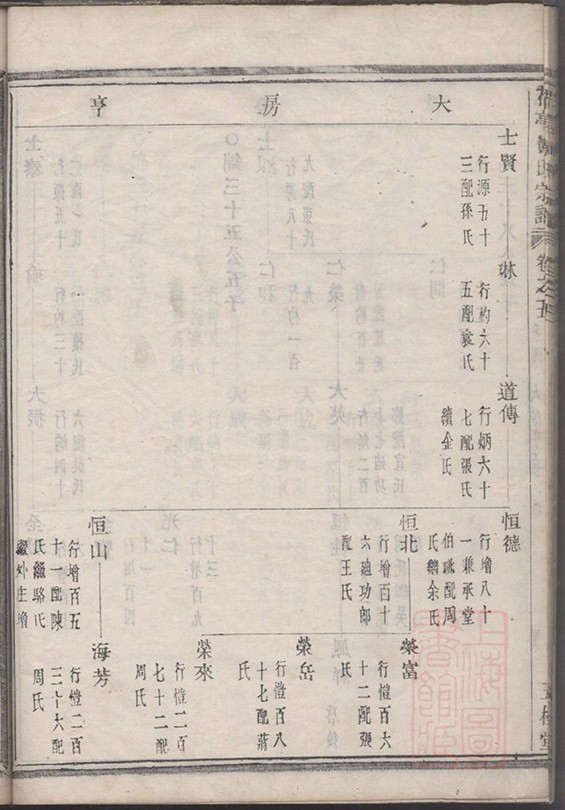 大房亨
士賢
行源五十
三配孫氏
琳
行約六十
五配袁氏
道傳
行炳六十
七配張氏
續金氏
恒德
行增八十
一兼承堂
伯毗配周
氏繼余氏
恒北
行增百十
六迪功郎
配王氏
榮富
行愷百六
十二配張
氏
榮岳
行愷百八
十七配蔣
氏
榮來
行愷二百
七十二配
周氏
恒山
行增百五
十一配陳
氏繼駱氏
海芳
行愷二百
三十六配
周氏
宗譜
卷之五